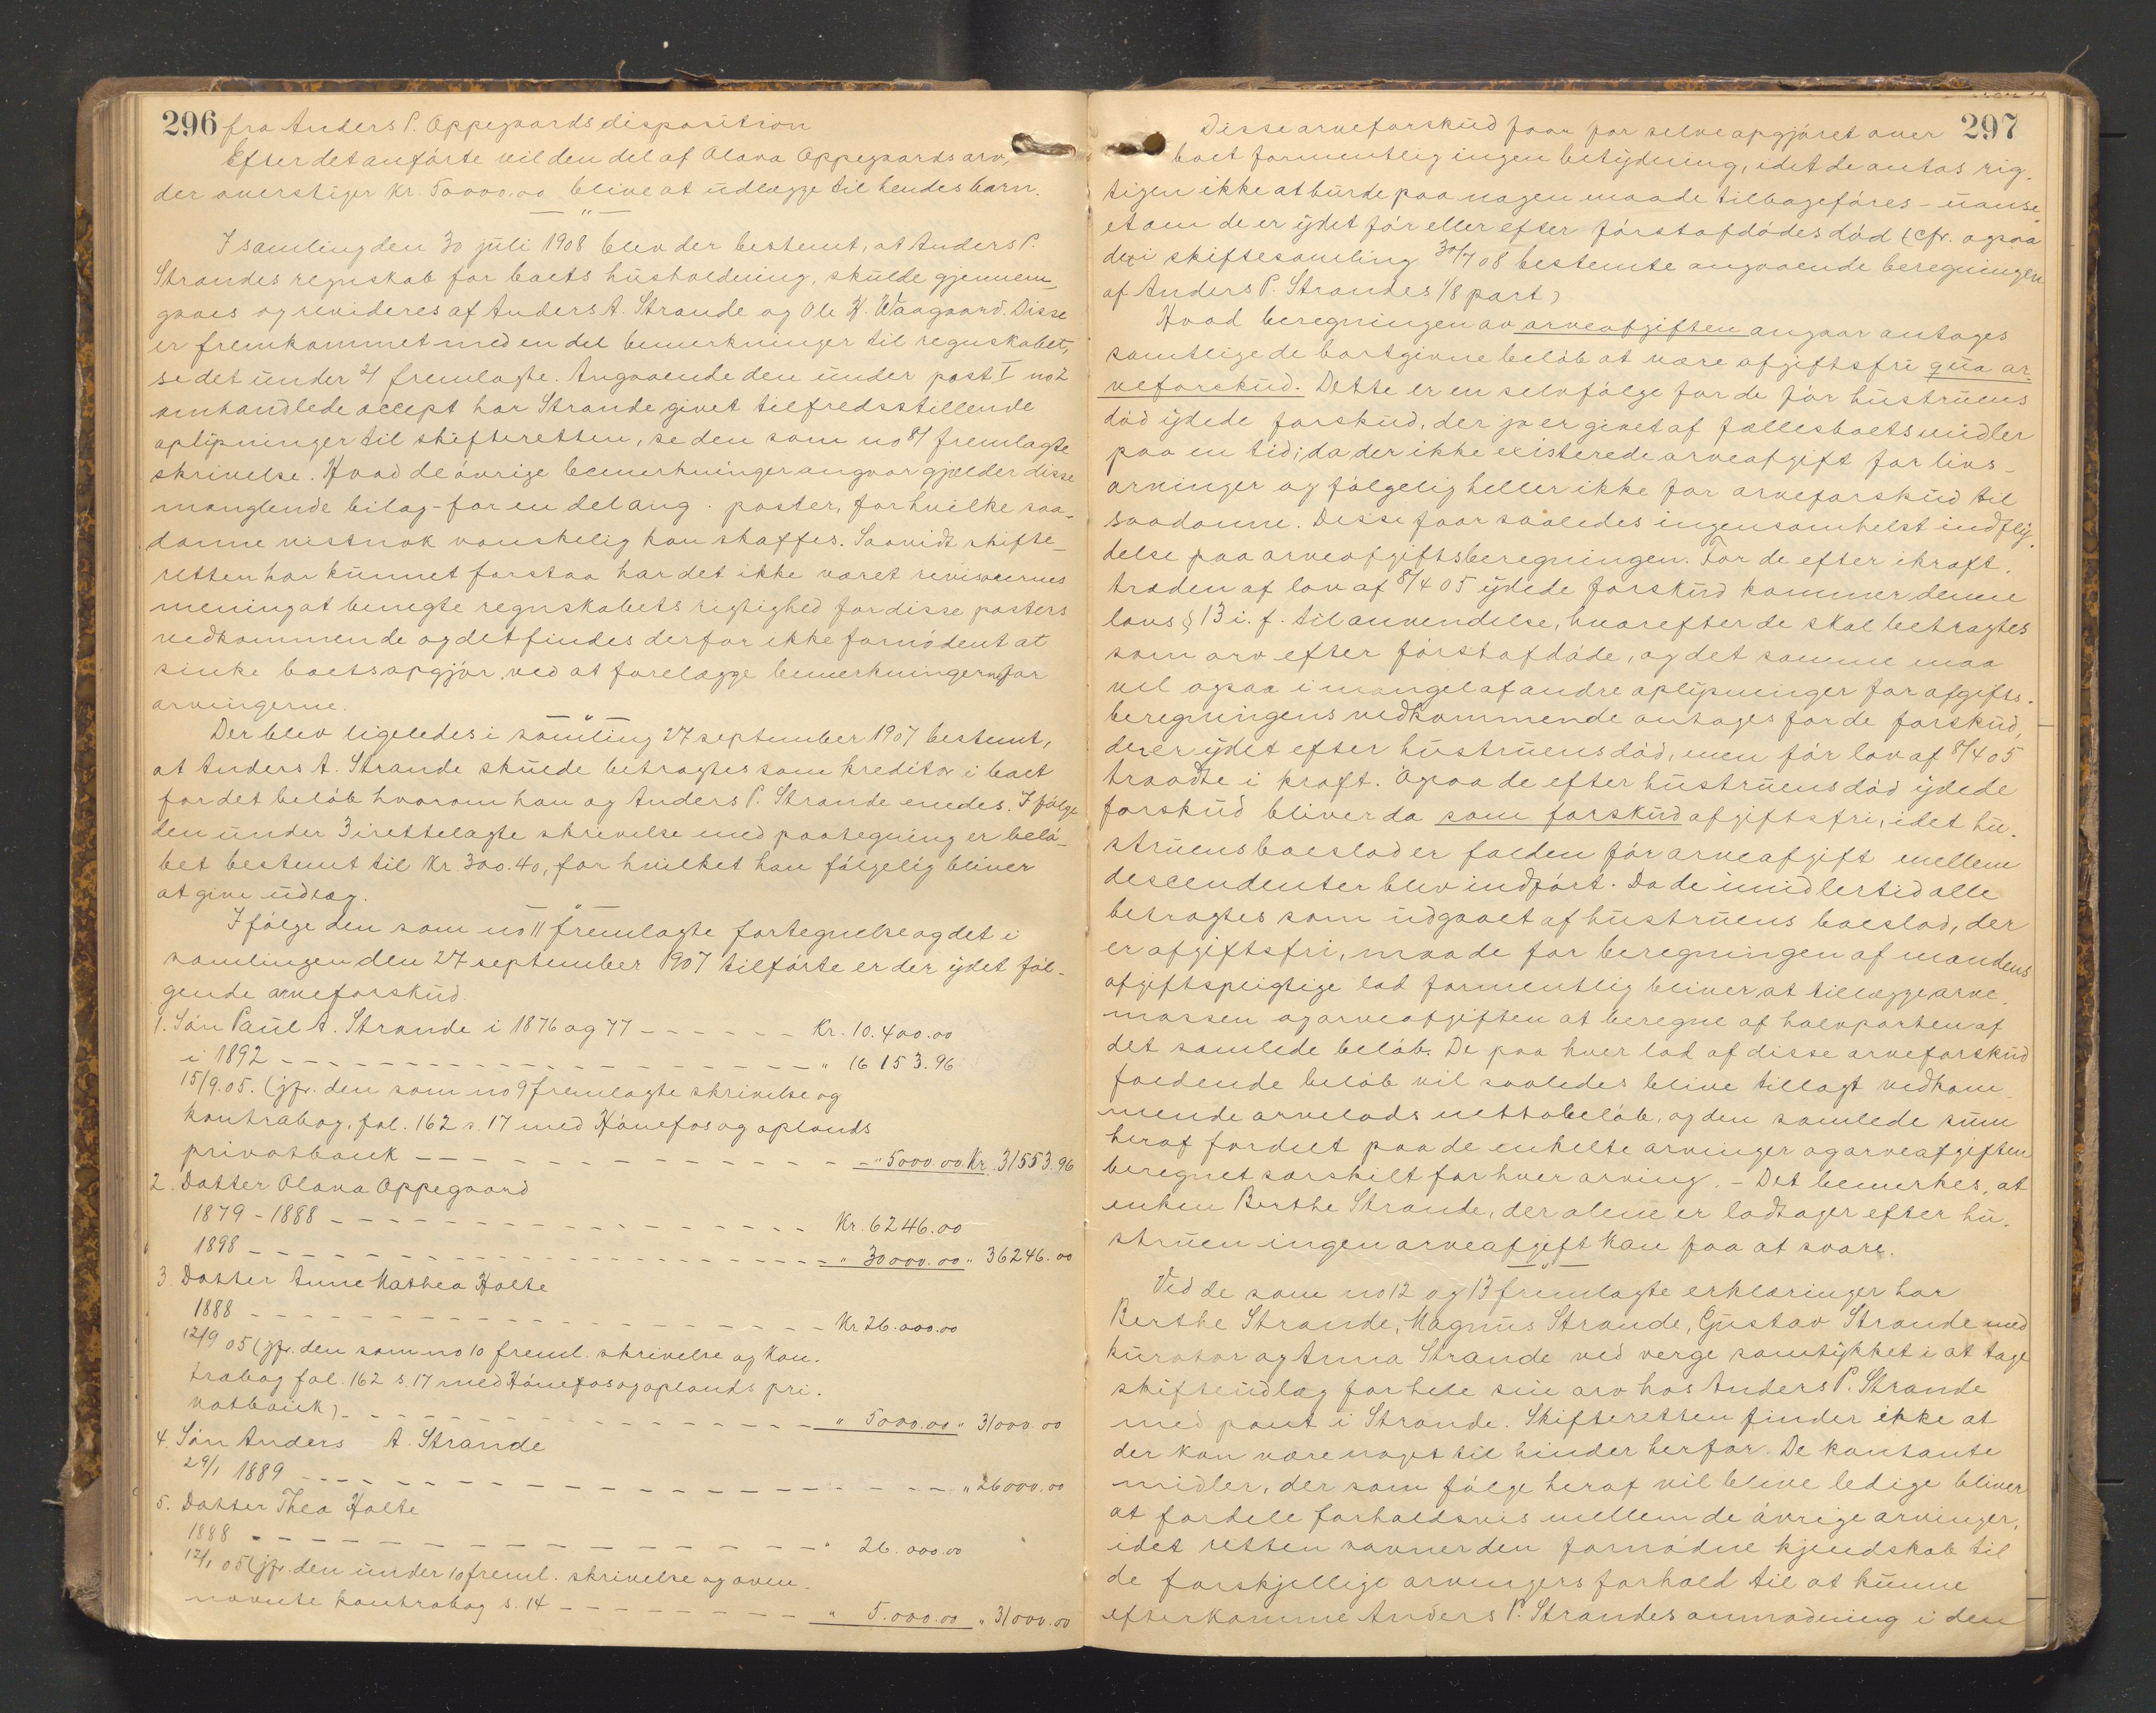 296 fra Anders P. Oppegaards disposition
Efter det anførte vil den del af Olava Oppegaards arv,
der overstiger kr. 50000.00 blive at udlægge til hendes barn.
— " —
I samling den 30 juli 1908 blev der bestemt, at Anders P.
Strandes regnskab for boets husholdning, skulde gjennem-
gaaes og revideres af Anders A. Strande og Ole H. Waagaard. Disse
er fremkommet med en del bemerkninger til regnskabet,
se det under 2/ fremlagte. Angaaende den under post I no 2
omhandlede accept har Strande givet tilfredsstillende
oplysninger til skifteretten, se den som no 8/ fremlagte
skrivelse. Hvad de øvrige bemerkninger angaar gjælder disse
manglende bilag - for en del ang. poster, for hvilke saa-
danne vistnok vanskelig kan skaffes. Saavidt skifte-
retten har kunnet forstaa har det ikke været revisorernes
mening at benegte regnskabets rigtighed for disse posters
vedkommende og det findes derfor ikke fornødent at
sinke boets opgjør ved at forelægge bemerkningerne for
arvingerne.
— " —
Der blev ligeledes i samling 27 september 1907 bestemt,
at Anders A. Strande skulde betragtes som kreditor i boet
for det beløb hvorom han og Anders P. Strande enedes. Ifølge
den under 3 irettelagte skrivelse med paategning er belø-
bet bestemt til Kr. 300.40, for hvilket han følgelig bliver
at give udlæg.
— " —
Ifølge den som no 11 fremlagte fortegnelse og det i
samlingen den 27 september 1907 tilførte er der ydet føl-
gende arveforskud.
1. Søn Paul A. Strande i 1876 og 77 - - - - - - Kr. 10.400.00
i 1892 - - - - - - - - - - - - - - - - - " 16 153.96
15/9.05. (jfr. den som no 9 fremlagte skrivelse og
kontrabog, fol. 162 s. 17 med Hønefos og oplands
privatbank - - - - - - - - - - - - - - " 5000.00 Kr. 31553.96
2. Datter Olava Oppegaard
1879 - 1888 - - - - - - - - - - - - - - - - Kr. 6246.00
1898 - - - - - - - - - - - - - - - - - - " 30000.00 " 36246.00
3. Datter Anne Mathea Holte
1888 - - - - - - - - - - - - - - - - - - Kr 26.000.00
12/9 05 (jfr. den som no 10 freml. skrivelse og kon-
trabog fol. 162 s. 17 med Hønefos og oplands pri-
vatbank) - - - - - - - - - - - - - - - - " 5000.00 " 31000.00
4. Søn Anders A. Strande
29/1 1889 - - - - - - - - - - - - - - - - - - - - " 26000.00
5. Datter Thea Holte
1888 - - - - - - - - - - - - - - - - - - " 26.000.00
12/1 05 (jfr. den under 10 freml. skrivelse og oven-
nævnte kontrabog s. 14 - - - - - - - - " 5.000.00 " 31000.00
Disse arveforskud faar for selve opgjøret over 297
boet formentlig ingen betydning, idet de antas rig-
tigen ikke at burde paa nogen maade tilbageføres - uanse-
et om de er ydet før eller efter førstafdødes død (cfr. ogsaa
det i skiftesamling 30/7 08 bestemte angaaende beregningen
af Anders P. Strandes 1/8 part)
Hvad beregningen av arveafgiften angaar antages
samtlige de bortgivne beløb at være afgiftsfri qua ar-
veforskud. Dette er en selvfølge for de før hustruens
død ydede forskud, der jo er givet af fællesboets midler
paa en tid, da der ikke existerede arveafgift for livs-
arvinger og følgelig heller ikke for arveforskud til
saadanne. Disse faar saaledes ingensomhelst indfly-
delse paa arveafgiftsberegningen. For de efter ikraft-
træden af lov af 8/4 05 ydede forskud kommer denne
lovs § 13 i. f. til anvendelse, hvorefter de skal betragtes
som arv efter førstafdøde, og det samme maa
vel ogsaa i mangel af andre oplysninger for afgifts-
beregningens vedkommende antages for de forskud,
der er ydet efter hustruens død, men før lov af 8/4 05
traadte i kraft. Ogsaa de efter hustruens død ydede
forskud bliver da som forskud afgiftsfri, idet hu-
struens boeslod er falden før arveafgift mellem
descendenter blev indført. Da de imidlertid alle
betragtes som udgaaet af hustruens boeslod, der
er afgiftsfri, maa de for beregningen af mandens
afgiftspligtige lod formentlig bliver at tillægge arve-
massen og arveafgiften at beregne af halvparten af
det samlede beløb. De paa hver lod af disse arveforskud
faldende beløb vil saaledes blive tillagt vedkom-
mende arvelods nettobeløb, og den samlede sum
heraf fordelt paa de enkelte arvinger og arveafgiften
beregnet særskilt for hver arving. - Det bemerkes, at
enken Berthe Strande, der alene er lodtager efter hu-
struen ingen arveafgift kan faa at svare.
— " —
Ved de som no 12 og 13 fremlagte erklæringer har
Berthe Strande, Magnus Strande, Gustav Strande med
kurator og Anna Strande ved verge samtykket i at tage
skifteudlæg for hele sin arv hos Anders P. Strande
med pant i Strande. Skifteretten finder ikke at
der kan være noget til hinder herfor. De kontante
midler, der som følge heraf vil blive ledige bliver
at fordele forholdsvis mellem de øvrige arvinger,
idet retten savner den fornødne kjendskab til
de forskjellige arvingers forhold til at kunne
efterkomme Anders P. Strandes anmodning i den